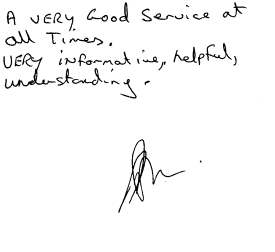 A VERY Good Service at
all Times.
VERY informative, helpful,
understanding.